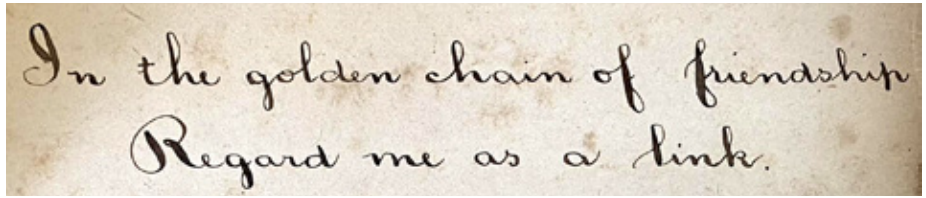 In the golden chain of friendship
Regard me as a link.